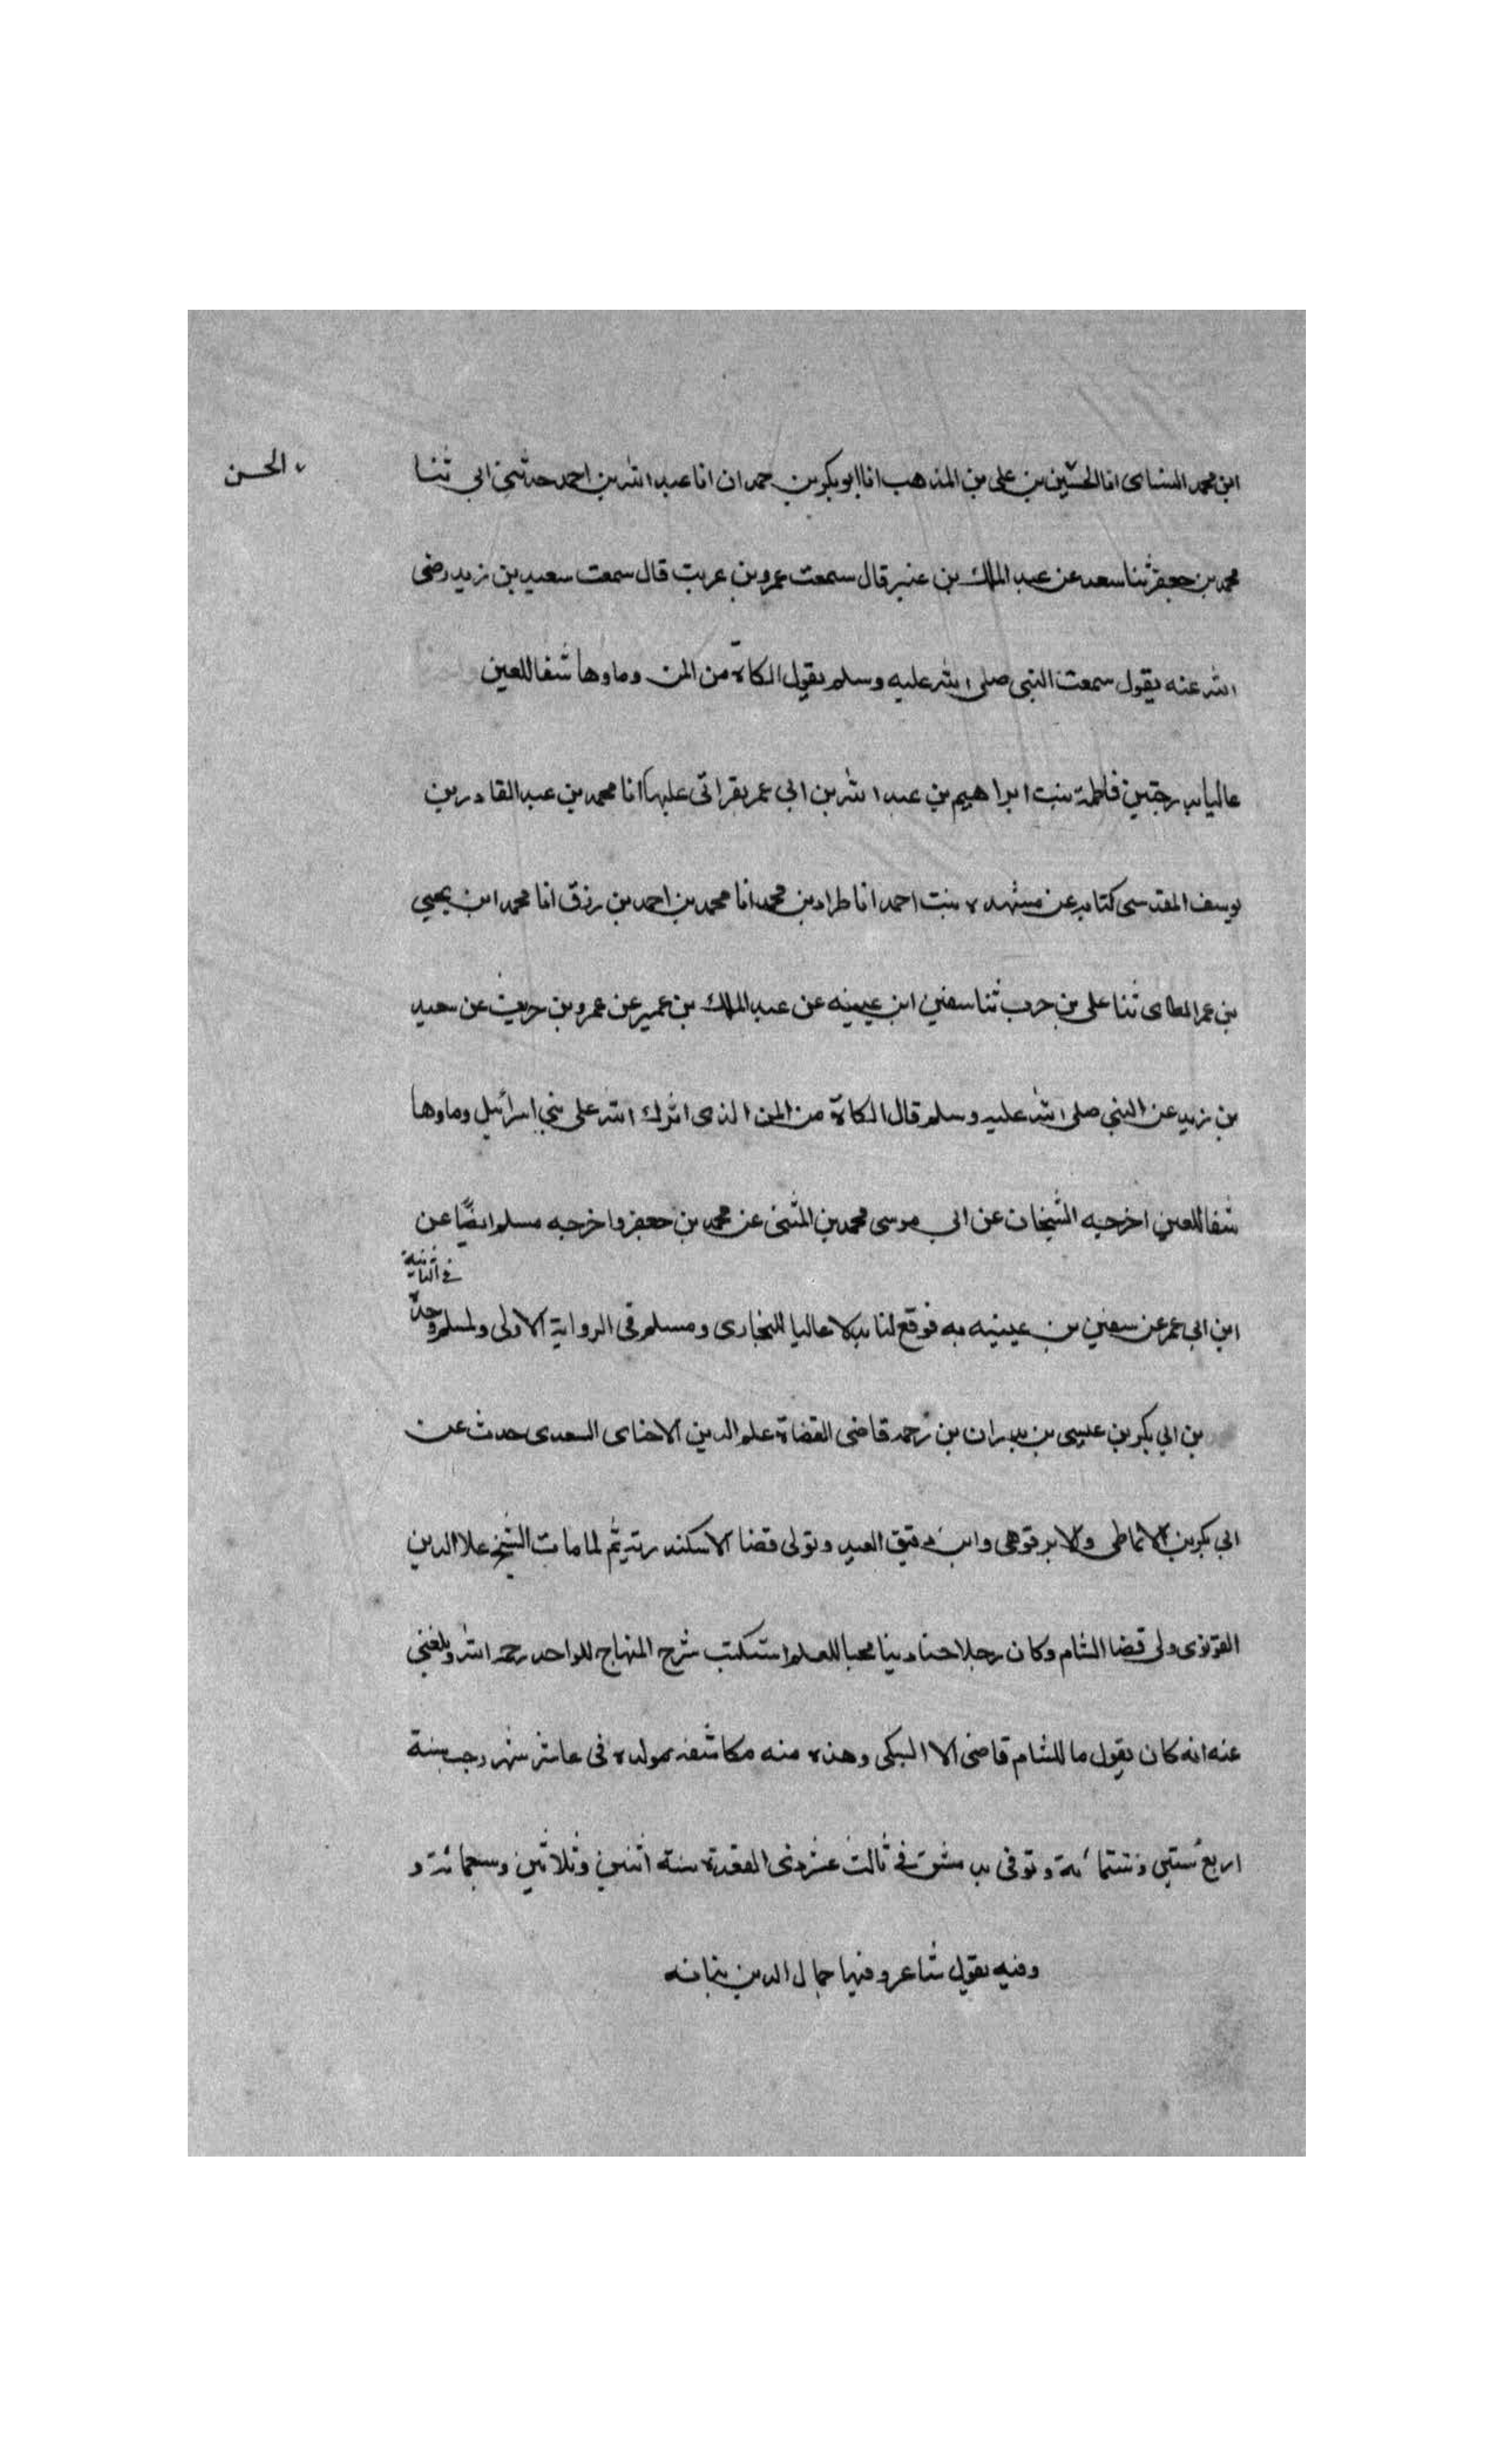 ابن محمد الشاى انا الحسين بن على بن المذهب انا ابو بكر بن حمدان انا عبد الله بن احمد حدثنى ابى ثنا
، الحسن
محمد بن جعفر ثنا سعد عن عبد الملك بن عنبر قال سمعت عمرو بن عريت قال سمعت سعيد بن زيد رضى
الله عنه يقول سمعت النبى صلى الله عليه وسلم يقول الكاة من المن وماوها شفا للعين
عاليا بدرجتين فاطمة بنت ابراهيم بن عبد الله بن ابى عمر بقراتى عليها انا محمد بن عبد القادر بن
يوسف المقدسى كتابه عن مشهده بنت احمد انا طراد بن محمد انا محمد بن احمد بن رزق انا محمد ابن يحيى
بن عمر الطاى ثنا على بن حرب ثنا سفين ابن عيينه عن عبد الملك بن عمير عن عمرو بن حريث عن سعيد
بن زيد عن النبى صلى الله عليه وسلم قال الكاة من المن الذى انزل الله على بنى اسرائيل وماوها
شفا للعين اخرجه الشيخان عن ابى موسى محمد بن المثنى عن محمد بن جعفر واخرجه مسلم ايضًا عن
فى الثانية
ابن ابى عمر عن سفين بن عيينه به فوقع لنا بدلا عاليا للبخارى ومسلم فى الرواية الاولى ولمسلم وحده
بن ابى بكر بن عيسى بن بدران بن رحمه قاضى القضاة علم الدين الاخناى السعدى حدث عن
ابى بكر بن الانماطى والابرقوهى وابن دقيق العيد وتولى قضا الاسكندرية ثم لما مات الشيخ علا الدين
القونوى ولى قضا الشام وكان رجلا حسنا دينا محبا للعلم استكتب شرح المنهاج للواحد رحمه الله وبلغنى
عنه انه كان يقول ما للشام قاضى الا السبكى وهذه منه مكاشفه مولده فى عاشر شهر رجب سنة
اربع ستين وستمائة وتوفى بدمشق فى ثالث عشر ذى القعدة سنة اثنين وثلاثين وسبعمائة و
وفيه يقول شاعر وفيها جمال الدين نباته